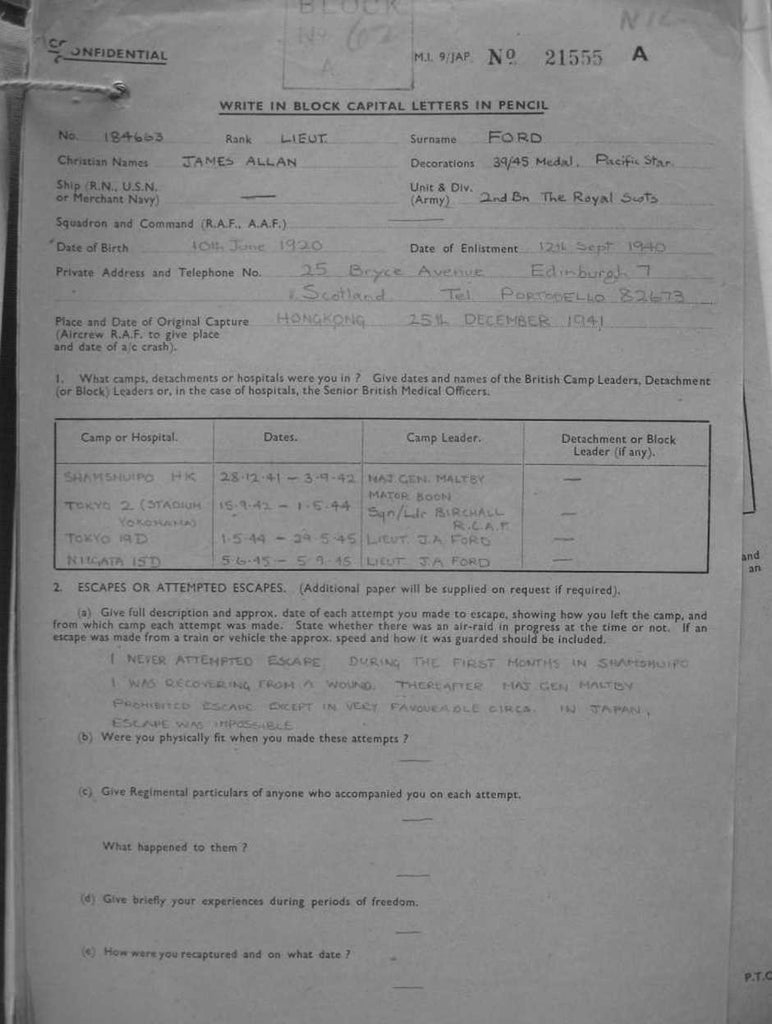 BLOCK
No 62
A
CONFIDENTIAL
M.I. 9/JAP. No 21555 A
WRITE IN BLOCK CAPITAL LETTERS IN PENCIL
No. 184663 Rank LIEUT. Surname FORD
Christian Names JAMES ALLAN Decorations 39/45 Medal, Pacific Star.
Ship (R.N., U.S.N. or Merchant Navy) — Unit & Div. (Army) 2nd Bn The Royal Scots
Squadron and Command (R.A.F., A.A.F.) —
Date of Birth 10th June 1920 Date of Enlistment 12th Sept 1940
Private Address and Telephone No. 25 Bryce Avenue Edinburgh 7
Scotland Tel PORTOBELLO 82673
Place and Date of Original Capture HONGKONG 25th DECEMBER 1941
(Aircrew R.A.F. to give place
and date of a/c crash).
1. What camps, detachments or hospitals were you in ? Give dates and names of the British Camp Leaders, Detachment
(or Block) Leaders or, in the case of hospitals, the Senior British Medical Officers.
Camp or Hospital. Dates. Camp Leader. Detachment or Block Leader (if any).
SHAMSHUIPO HK 28-12-41 – 3-9-42 MAJ. GEN. MALTBY —
MAJOR BOON
TOKYO 2 (STADIUM 15-9-42 – 1-5-44 Sqn/Ldr BIRCHALL —
YOKOHAMA) R.C.A.F.
TOKYO 19D 1-5-44 – 29-5-45 LIEUT. J.A FORD —
NIIGATA 15D 5-6-45 – 5-9-45 LIEUT J.A FORD —
2. ESCAPES OR ATTEMPTED ESCAPES. (Additional paper will be supplied on request if required).
(a) Give full description and approx. date of each attempt you made to escape, showing how you left the camp, and
from which camp each attempt was made. State whether there was an air-raid in progress at the time or not. If an
escape was made from a train or vehicle the approx. speed and how it was guarded should be included.
I NEVER ATTEMPTED ESCAPE. DURING THE FIRST MONTHS IN SHAMSHUIPO
I WAS RECOVERING FROM A WOUND. THEREAFTER MAJ GEN MALTBY
PROHIBITED ESCAPE EXCEPT IN VERY FAVOURABLE CIRCS. IN JAPAN,
ESCAPE WAS IMPOSSIBLE
(b) Were you physically fit when you made these attempts ?
—
(c) Give Regimental particulars of anyone who accompanied you on each attempt.
—
What happened to them ?
—
(d) Give briefly your experiences during periods of freedom.
—
(e) How were you recaptured and on what date ?
—
and
an
P.T.O